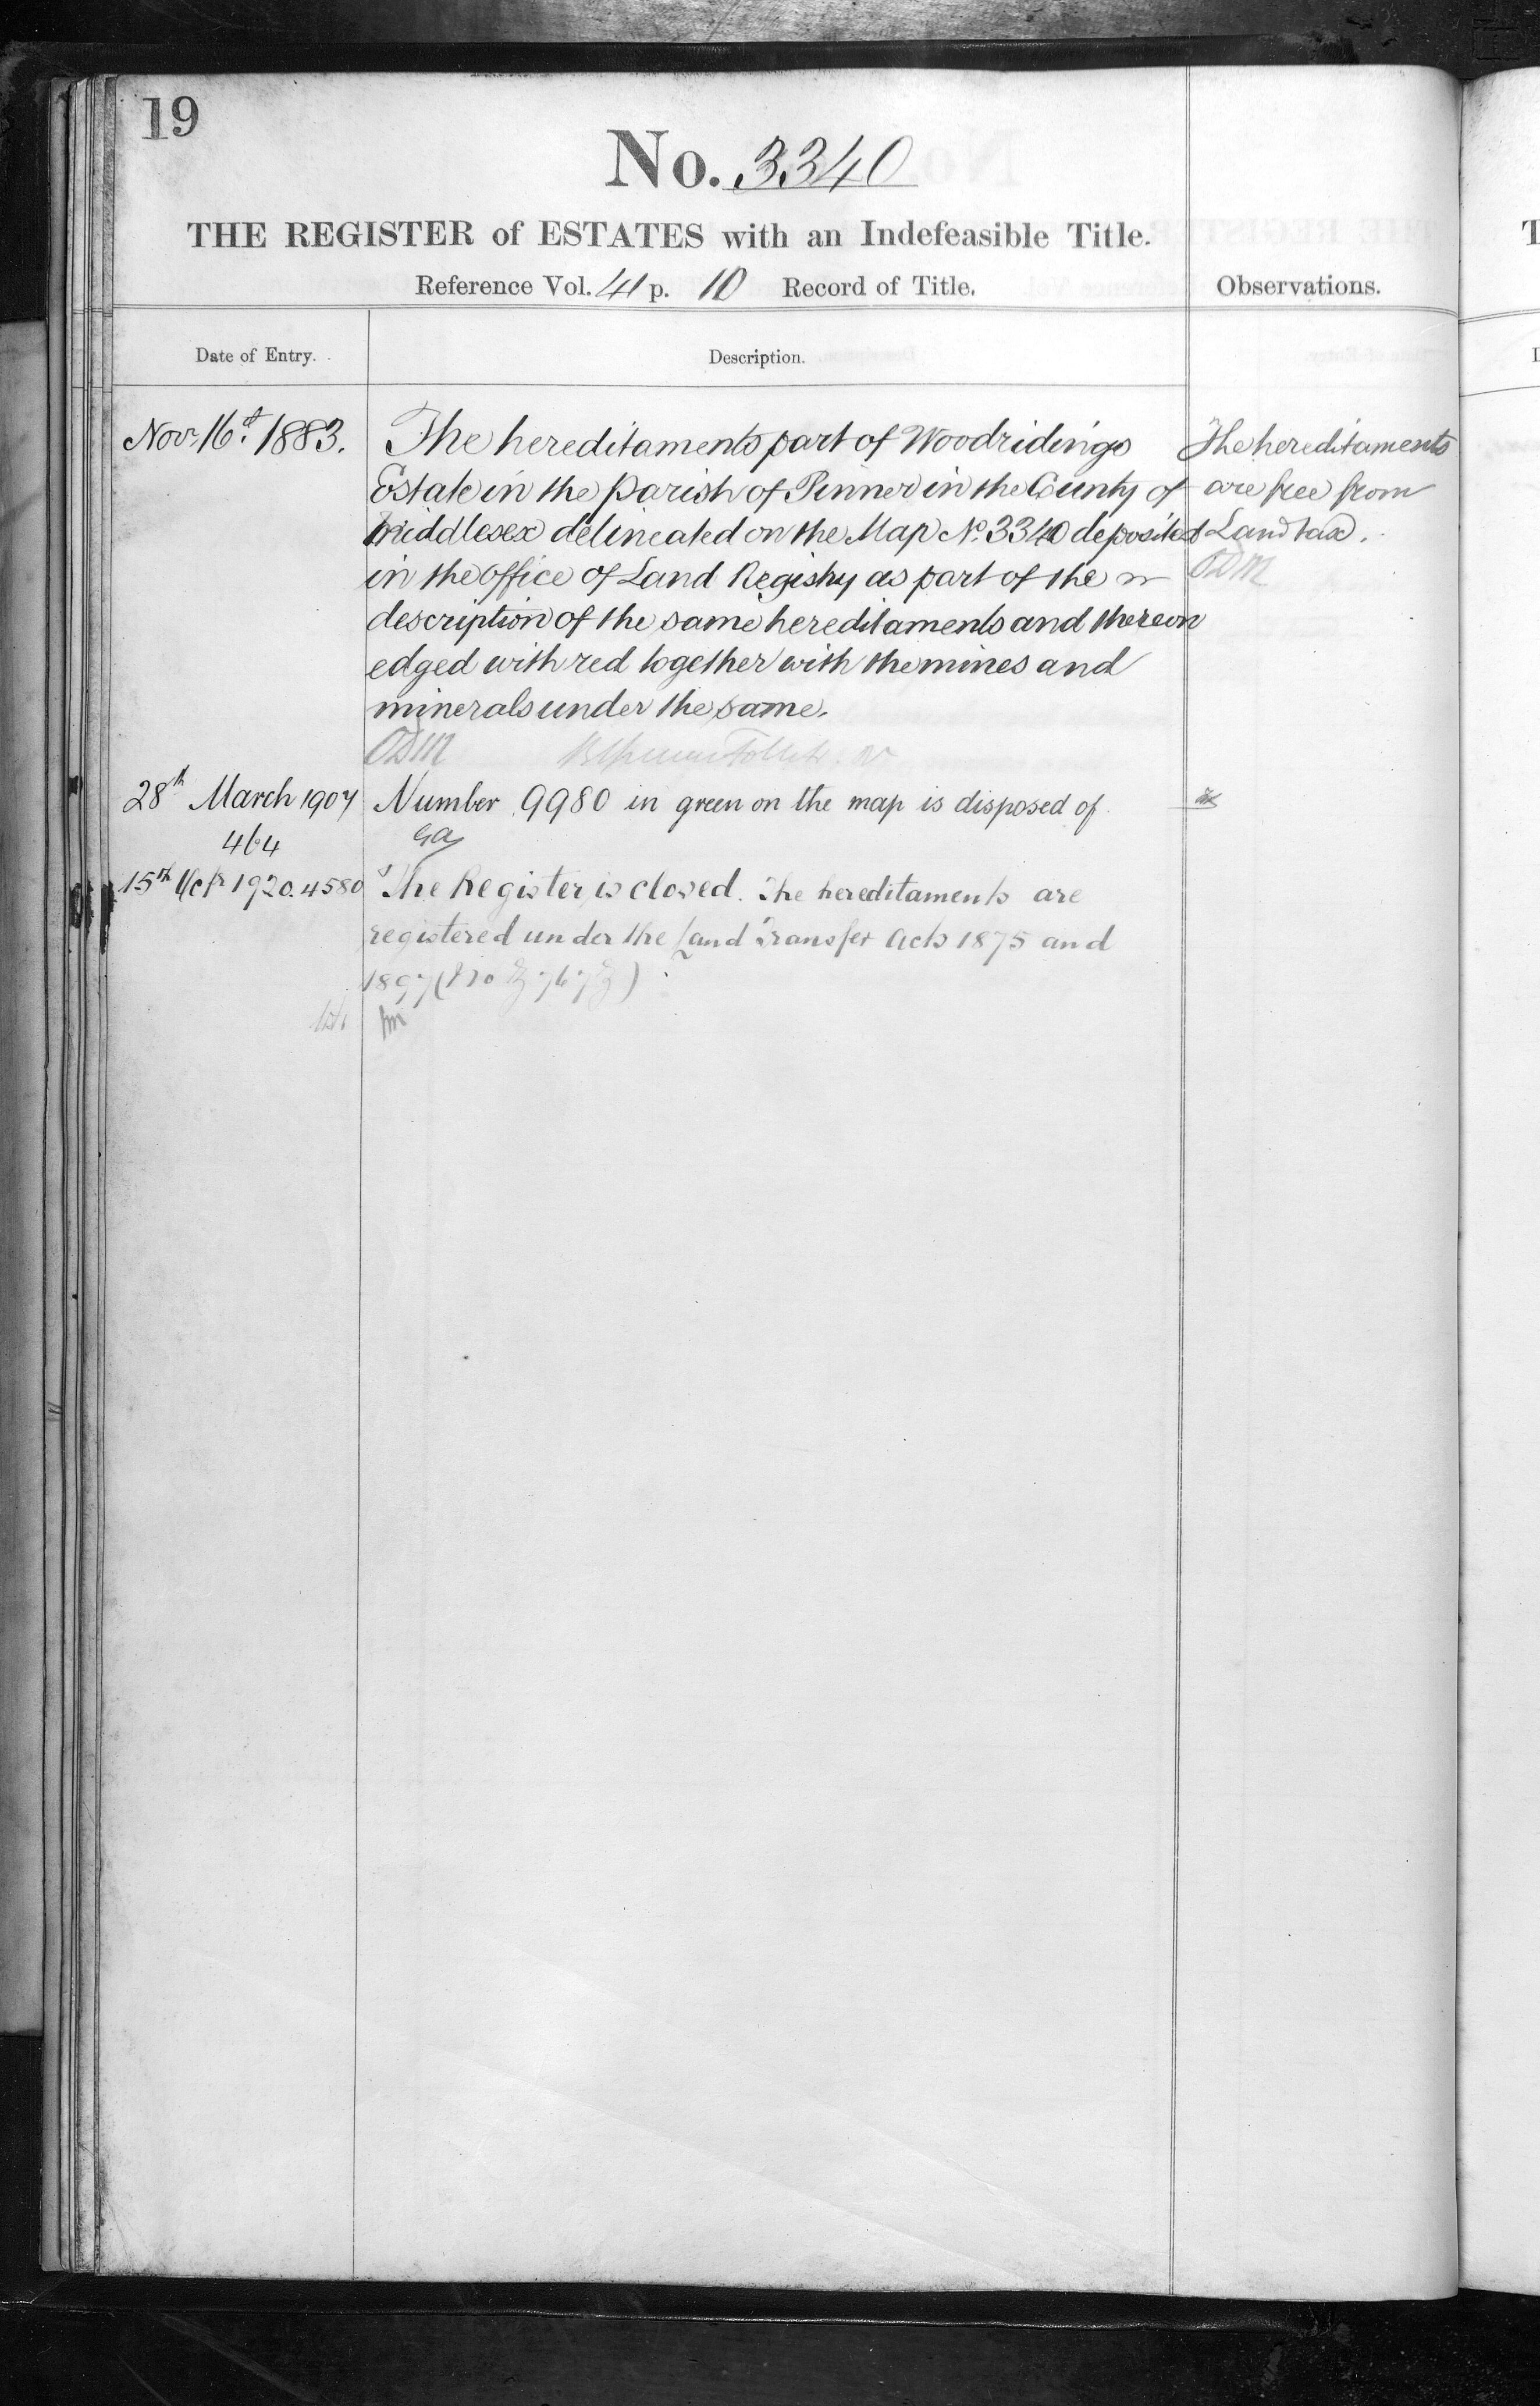 19
No. 3340
THE REGISTER of ESTATES with an Indefeasible Title.
Reference Vol. 41 p. 10 Record of Title.
Observations.
Date of Entry.
Description.
Novr. 16th. 1883.
The hereditaments part of Woodridings
Estate in the Parish of Pinner in the County of
Middlesex delineated on the Map No. 3340 deposited
in the office of Land Registry as part of the
description of the same hereditaments and thereon
edged with red together with the mines and
minerals under the same.
The hereditaments
are free from
Land tax.
28th March 1907
464
Number 9980 in green on the map is disposed of
15th Octr 1920. 4580
The Register is closed. The hereditaments are
registered under the Land Transfer Acts 1875 and
1897